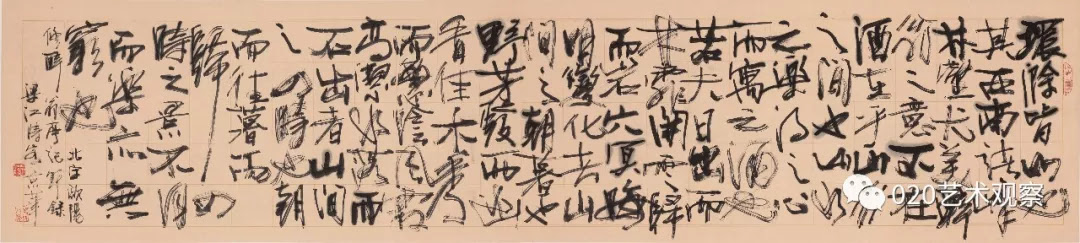 環滁皆山也
其西南諸峰
林壑尤美醉
翁之意不
在乎山
之間也山水
之樂得之心
而寓之酒也
若夫日出而
林霏開雲歸
而岩穴冥晦
明變化者山
間之朝暮也
野芳發而幽
香佳木秀
而繁陰風霜
高潔水落而
石出者山間
之四時也朝
而往暮而
歸四
時之景不同
而樂亦無
窮也
北宋歐陽
修醉翁亭記節錄
梁江時客京華
020艺术观察